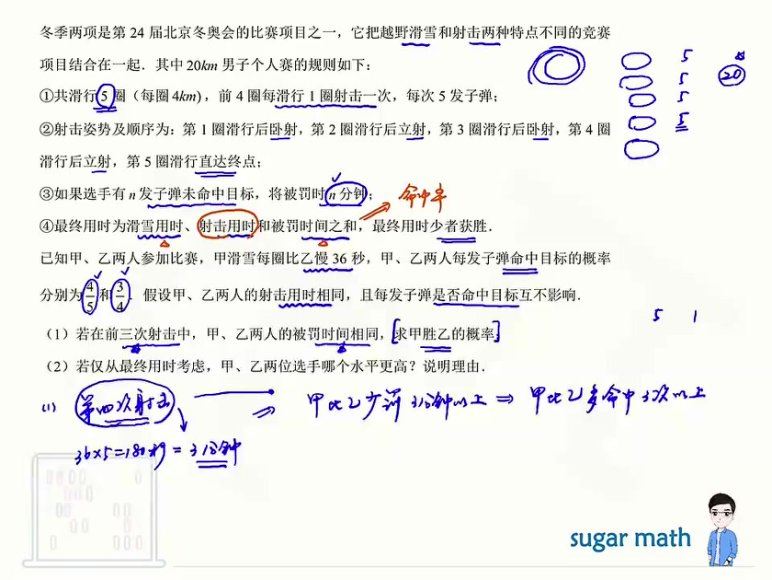 冬季两项是第 24 届北京冬奥会的比赛项目之一，它把越野滑雪和射击两种特点不同的竞赛
项目结合在一起．其中 20km 男子个人赛的规则如下：
①共滑行 5 圈（每圈 4km），前 4 圈每滑行 1 圈射击一次，每次 5 发子弹；
②射击姿势及顺序为：第 1 圈滑行后卧射，第 2 圈滑行后立射，第 3 圈滑行后卧射，第 4 圈
滑行后立射，第 5 圈滑行直达终点；
③如果选手有 n 发子弹未命中目标，将被罚时 n 分钟；
④最终用时为滑雪用时、射击用时和被罚时间之和，最终用时少者获胜．
已知甲、乙两人参加比赛，甲滑雪每圈比乙慢 36 秒，甲、乙两人每发子弹命中目标的概率
分别为 4/5 和 3/4．假设甲、乙两人的射击用时相同，且每发子弹是否命中目标互不影响．
（1）若在前三次射击中，甲、乙两人的被罚时间相同，求甲胜乙的概率；
（2）若仅从最终用时考虑，甲、乙两位选手哪个水平更高？说明理由．
5
5
20
5
5
命中率
5 1
(1) 第四次射击 ⇒ 甲比乙少罚 3分钟以上 ⇒ 甲比乙多命中3次以上
36×5=180秒=3分钟
sugar math